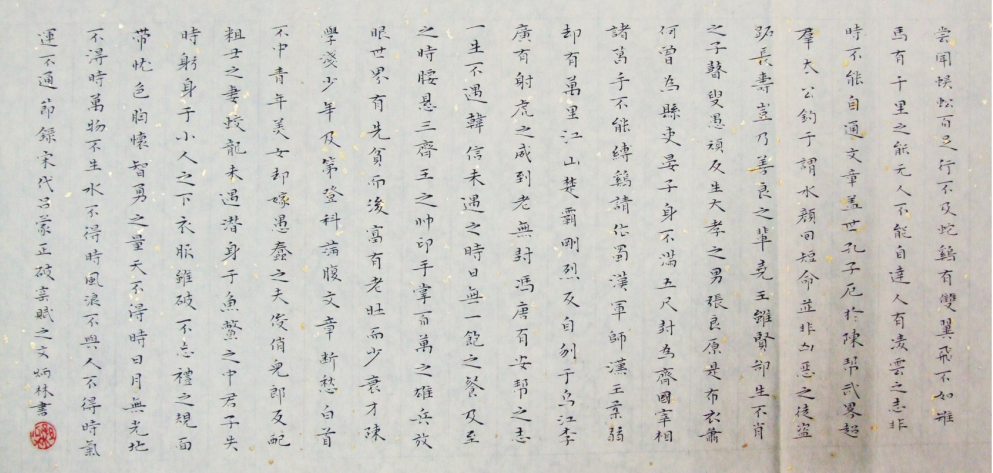 尝聞蜈蚣百足行不及蛇鷄有雙翼飛不如鴉
馬有千里之能无人不能自達人有凌雲之志非
時不能自通文章盖世孔子厄於陳幇武畧超
羣太公釣于謂水顔回短命並非凶惡之徒盜
跖長壽豈乃善良之輩堯王雖賢却生不肖
之子瞽叟愚頑反生大孝之男張良原是布衣蕭
何曾為縣吏晏子身不滿五尺封為齊國宰相
諸葛手不能縛鷄請作蜀漢軍師漢王柔弱
却有萬里江山楚霸剛烈反自刎于烏江李
廣有射虎之威到老無封馮唐有安幇之志
一生不遇韓信未遇之時日無一飽之餐及至
之時腰悬三齊王之帅印手掌百萬之雄兵放
眼世界有先貧而後富有老壯而少衰才陳
學淺少年及第登科滿腹文章断愁白首
不中青年美女却嫁愚蠢之夫俊俏皃郎反配
粗丑之妻蛟龍未遇潜身于魚鱉之中君子失
時躬身于小人之下衣服雖破不忘禮之規面
带忧色胸懷智勇之量天不得時日月無光地
不得時萬物不生水不得時風浪不與人不得時氣
運不通節錄宋代呂蒙正破窯賦之文炳林書